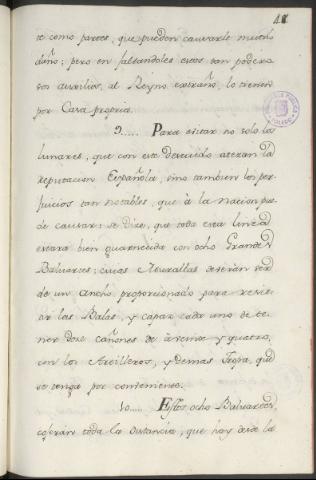 te como partes, que puedan causarle mucho
daño; pero en faltandoles estos tan podero
sos auxilios, al Reyno estraño, lo tienen
por Casa propria.
9..... Para evitar no solo los
lunares, que con este descuido atezan la
reputacion Española, sino tambien los per
juicios tan notables, que à la nacion pue
de causar: se dize, que toda esta linea
estara bien guarnecida con ocho Grandes
Baluartes; cuias Murallas deberàn ser
de un ancho proporcionado para resis
tir las Balas, y capaz cada uno de te
ner Doze cañones de à veinte y quatro,
con los Artilleros, y demas Tropa, que
se tenga por conveniente.
10..... Estos ocho Baluartes,
cojeràn toda la distancia, que hay desde la